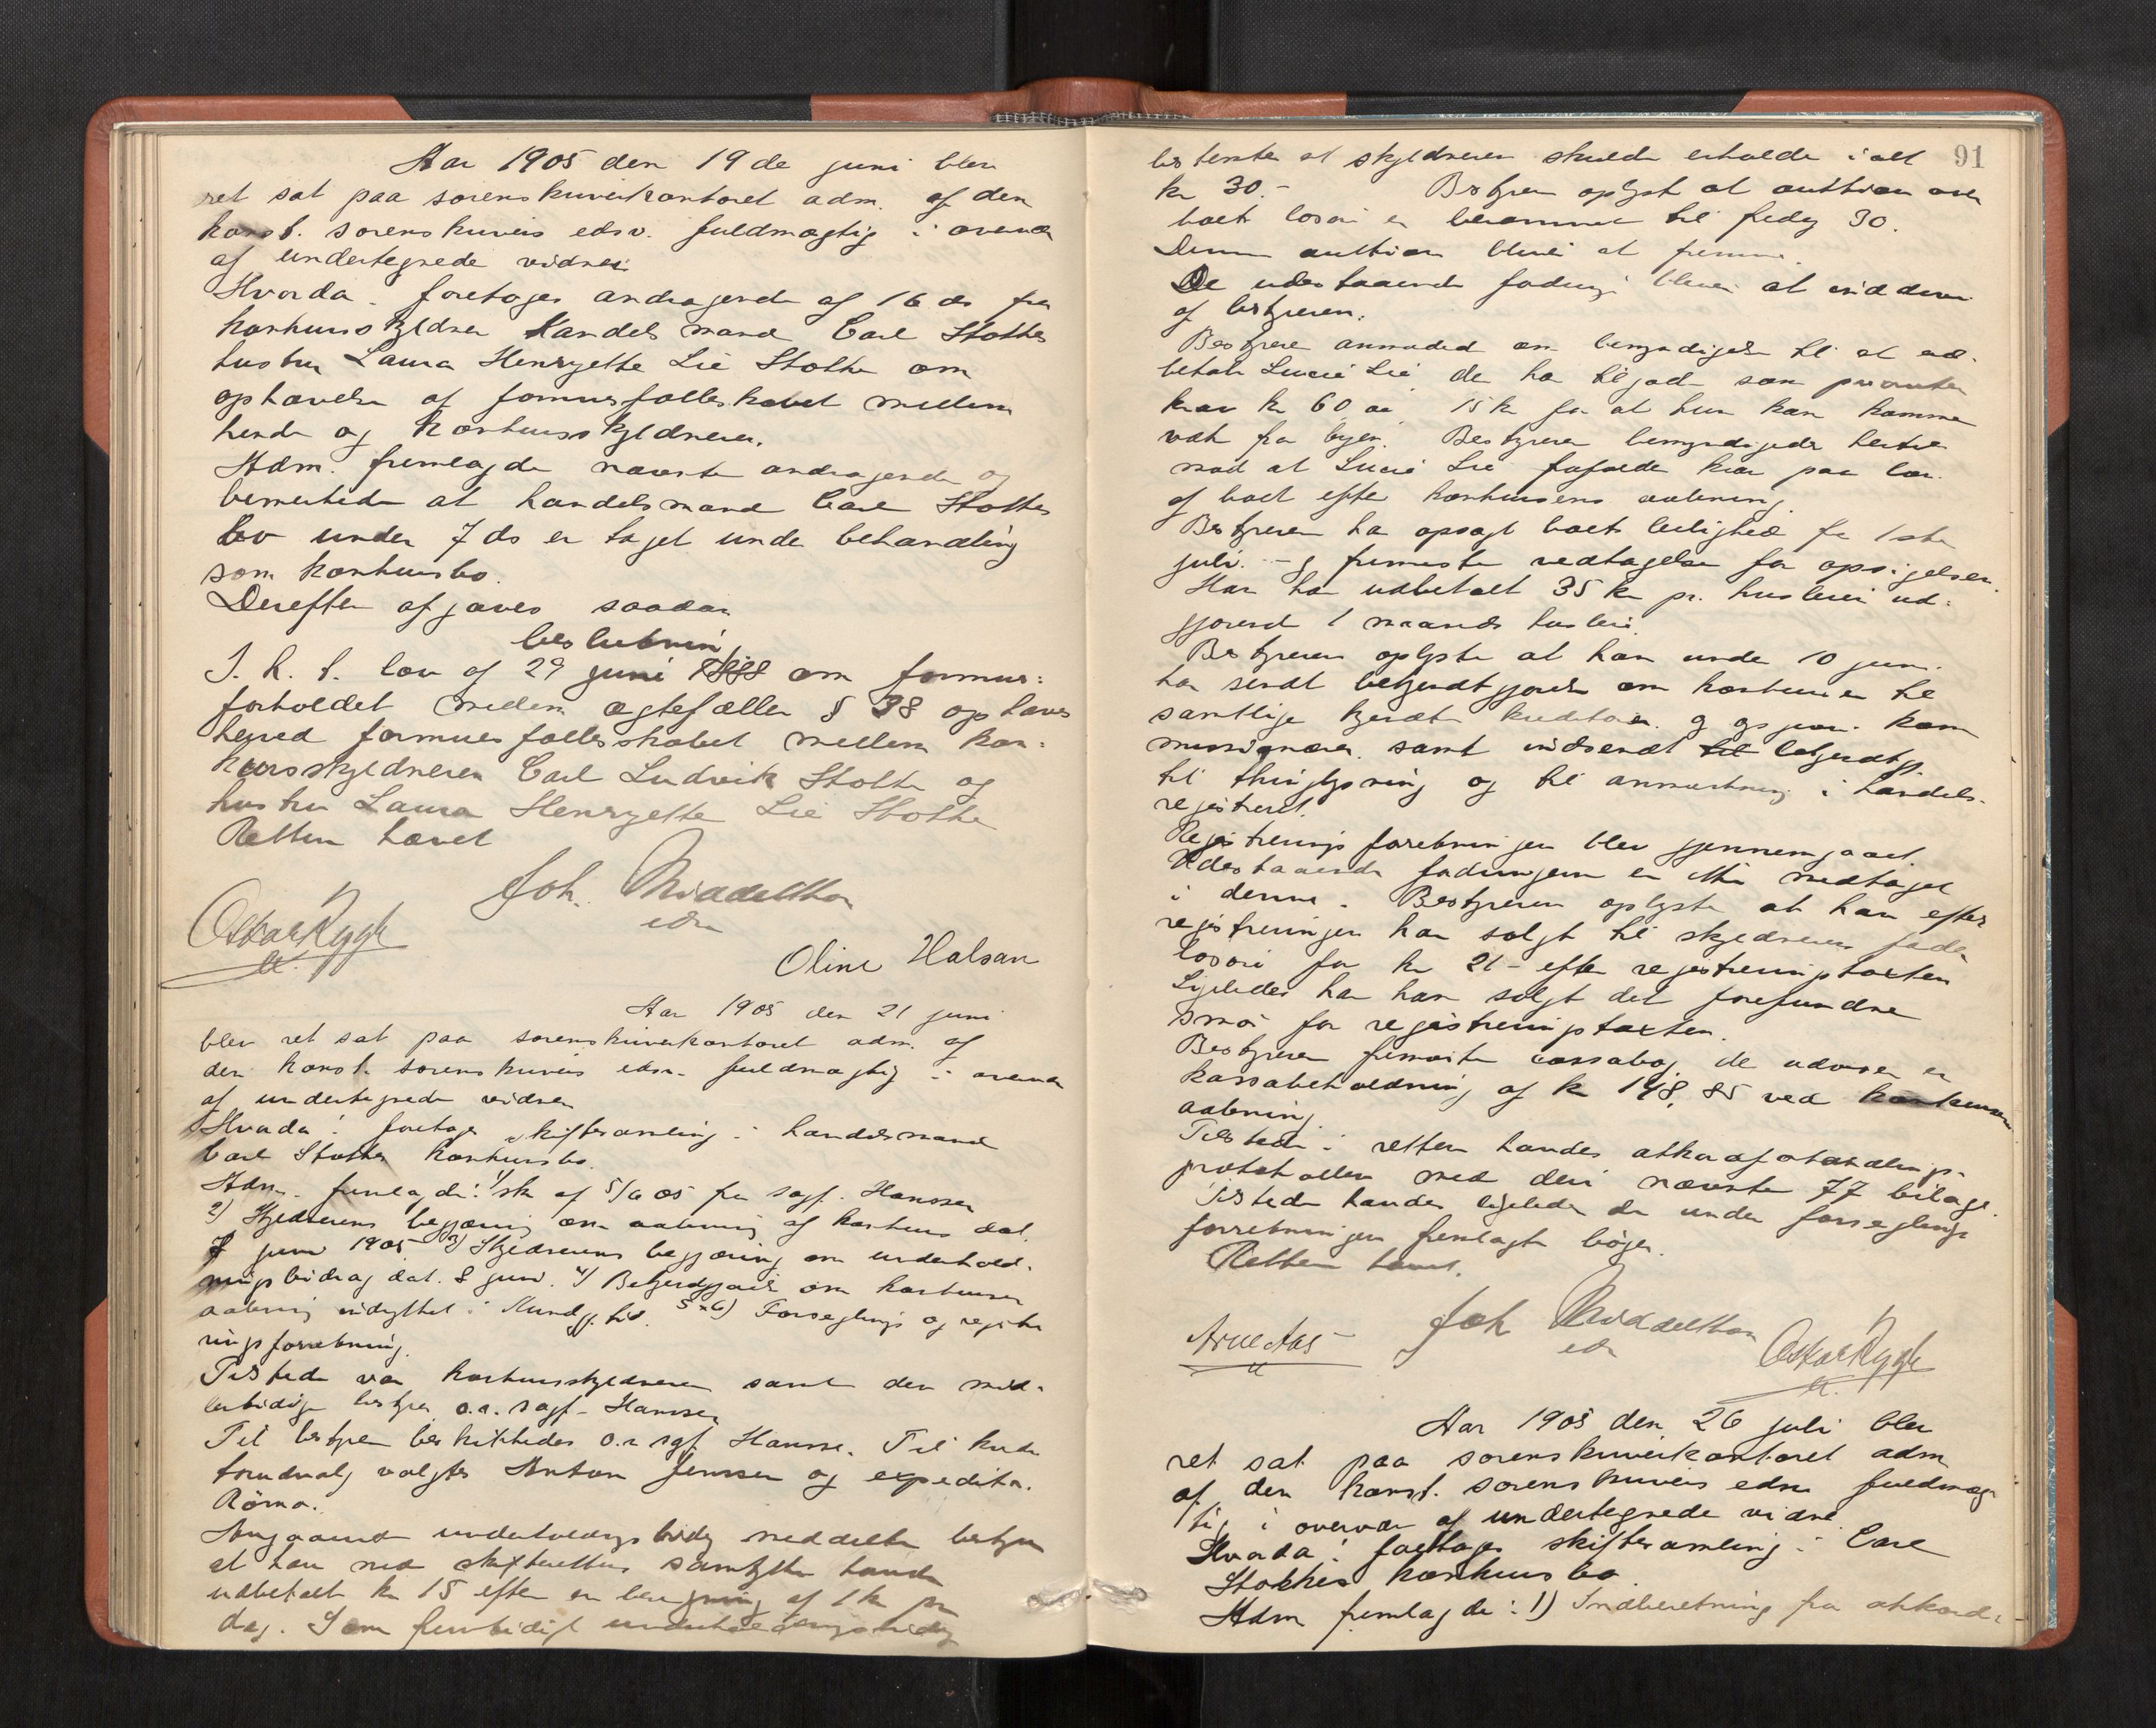 Aar 1905 den 19de juni blev
ret sat paa sorenskriverkontoret adm. af den
konst. sorenskrivers edsv. fuldmægtig i overvær
af undertegnede vidner
Hvorda. foretoges andragende af 16 ds fra
konkursskyldner Handelsmand Carl Stokkes
hustru Laura Henryette Lie Stokke om
ophævelse af formuesfællesskabet mellem
hende og konkursskyldneren.
Adm. fremlagde nævnte andragende og
bemerkede at handelsmand Carl Stokkes
bo under 7 ds er taget under behandling
som konkursbo.
Derefter afgaves saadan
beslutning
I. h. t. lov af 29 juni 1888 om formues-
forholdet mellem ægtefæller § 38 ophæves
herved formuesfællesskabet mellem kon-
kursskyldneren Carl Ludvik Stokke og
hustru Laura Henryette Lie Stokke
Retten hævet
Joh. Middelthon
edsv
Oskar Rygh
Oline Halsan
Aar 1905 den 21 juni
blev ret sat paa sorenskriverkontoret adm. af
den konst. sorenskrivers edsv. fuldmægtig i overvær
af undertegnede vidner
Hvorda: foretoges skiftesamling i handelsmand
Carl Stokkes konkursbo.
Adm. fremlagde: 1/ sk af 5/6 05 fra sagf. Hanssen
2) Skyldnerens begjæring om aabning af konkurs dat.
7 juni 1905 3) Skyldnerens begjæring om underhold-
ningsbidrag dat. 8 juni. 4) Bekjendtgjørelse om konkursens
aabning indrykket i Kundgj. tid. 5 & 6) Forseglings og registre
ringsforretning.
Tilstede var konkursskyldneren samt den mid-
lertidige bestyrer o.r.sagf. Hanssen
Til bestyrer beskikkedes o.r.sgf. Hanssen. Til kredi
torudvalg valgtes Anton Jenssen og expeditør
Röma.
Angaaende underholdningsbidrag meddelte bestyreren
at han med skifterettens samtykke havde
udbetalt kr 15 efter en beregning af 1 kr pr
dag. Som fremtidigt underholdningsbidrag
91
bestemtes at skyldneren skulde erholde i alt
kr 30.- Bestyreren oplyste at auktion over
boets løsøre er berammet til fredag 30.
Denne auktion bliver at fremme.
De udestaaende fordringer bliver at inddrive
af bestyreren.
Bestyreren anmodede om bemyndigelse til at ud-
betale Lucie Lie, der har tilgode som prioritet
krav kr 60, 15 kr for at hun kan komme
væk fra byen. Bestyreren bemyndigedes hertil
mod at Lucie Lie frafalder krav paa løn
af boet efter konkursens aabning
Bestyreren har opsagt boets leilighed fra 1ste
juli. - og fremviste vedtagelse for opsigelsen.
Han har udbetalt 35 kr pr. husleie ud-
gjørende 1 maaneds husleie.
Bestyreren oplyste at han under 10 juni
har sendt bekjendtgjørelse om konkursen til
samtlige kjendte kreditorer og kom
missionærer samt indsendt til bekjendtgj.
til thinglysning og til anmerkning i handels-
registeret.
Registreringsforretningen blev gjennemgaaet.
Udestaaende fordringer er ikke medtaget
i denne. Bestyreren oplyste at han efter
registreringen har solgt til skyldnerens fader
løsøre for kr 21 - efter registreringstaxten
Ligeledes har han solgt det forefundne
smör for registreringstaxten.
Bestyreren fremviste cassabog, der udviser en
kassabeholdning af kr 148,85 ved konkursens
aabning
Tilstede i retten havdes
protokollen med deri nævnte 77 bilage.
Tilstede havdes ligeledes de under forseglings
forretningen fremlagte bøger.
Retten hævet.
Joh Middelthon
edsv
Arne Aas
Oskar Rygh
Aar 1905 den 26 juli blev
ret sat paa sorenskriverkontoret adm
af den konst. sorenskrivers edsv fuldmæg
tig i overvær af undertegnede vidner
Hvorda: foretoges skiftesamling i Carl
Stokkes konkursbo.
Adm fremlagde: 1) Indberetning fra akkord-